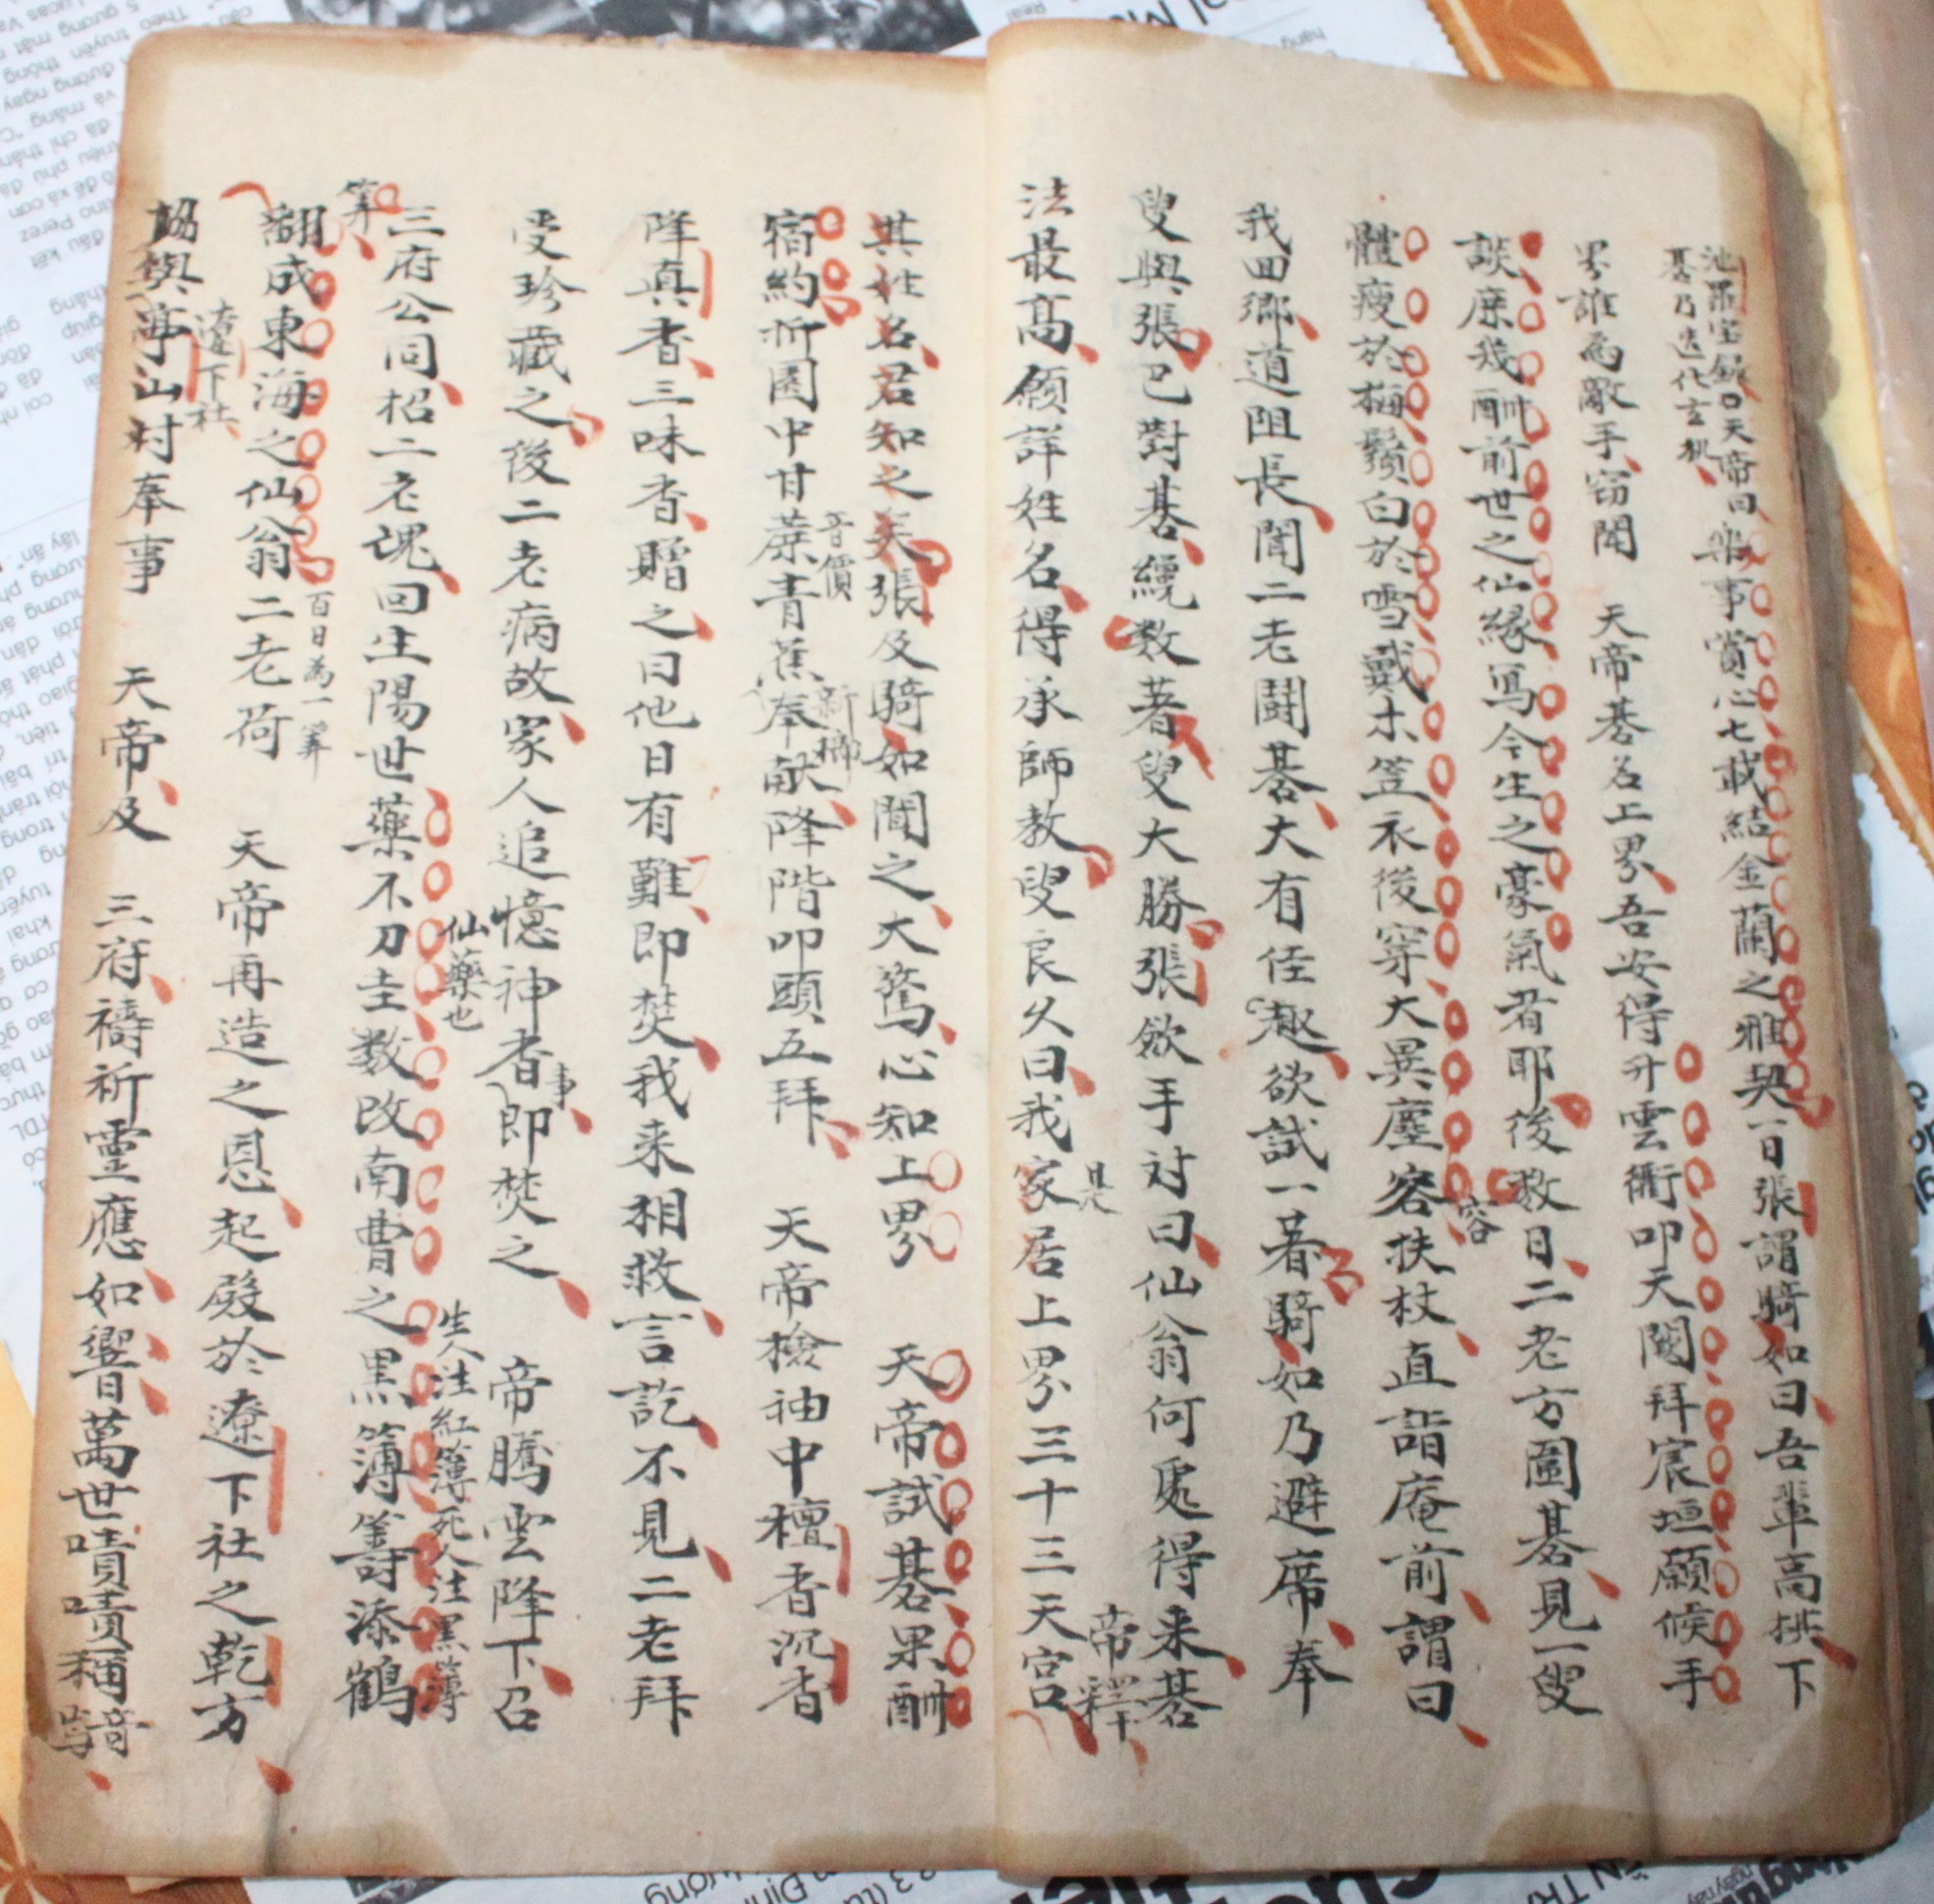 樂事賞心七載結金蘭之雅契一日張謂騎如曰吾輩高拱下
界誰為敵手窃聞 天帝碁名上界吾安得升雲衢叩天閽拜宸垣願候手
談庶幾酬前世之仙緣寫今生之豪氣者耶後数日二老方圍碁見一叟
體瘦於梅鬚白於雪戴木笠衣後穿大異塵容扶杖直詣庵前謂曰
容
我回鄉道阻長聞二老鬪碁大有佳趣欲試一著騎如乃避席奉
叟與張巴對碁纔数著叟大勝張歛手討曰仙翁何處得来碁
法最高願詳姓名得承師教叟良久曰我家居上界三十三天宮
是
帝釋
其姓名君知之矣張及騎如聞之大驚心知上界 天帝試碁果酬
宿約折園中甘蔗青蕉奉献降階叩頭五拜 天帝檢袖中檀香沉香
音價
降真香三味香贈之曰他日有難即焚我来相救言訖不見二老拜
受珍藏之後二老病故家人追憶神香即焚之 帝騰雲降下召
事
三府公同招二老魂回生陽世藥不刀圭数改南曹之黒簿籌添鶴
仙藥也
生人注紅簿死人注黒簿
算
翻成東海之仙翁二老荷 天帝再造之恩起殿於遼下社之乾方
百日為一算
遼下社
與亭山村奉事 天帝及 三府禱祈靈應如響萬世嘖嘖稱